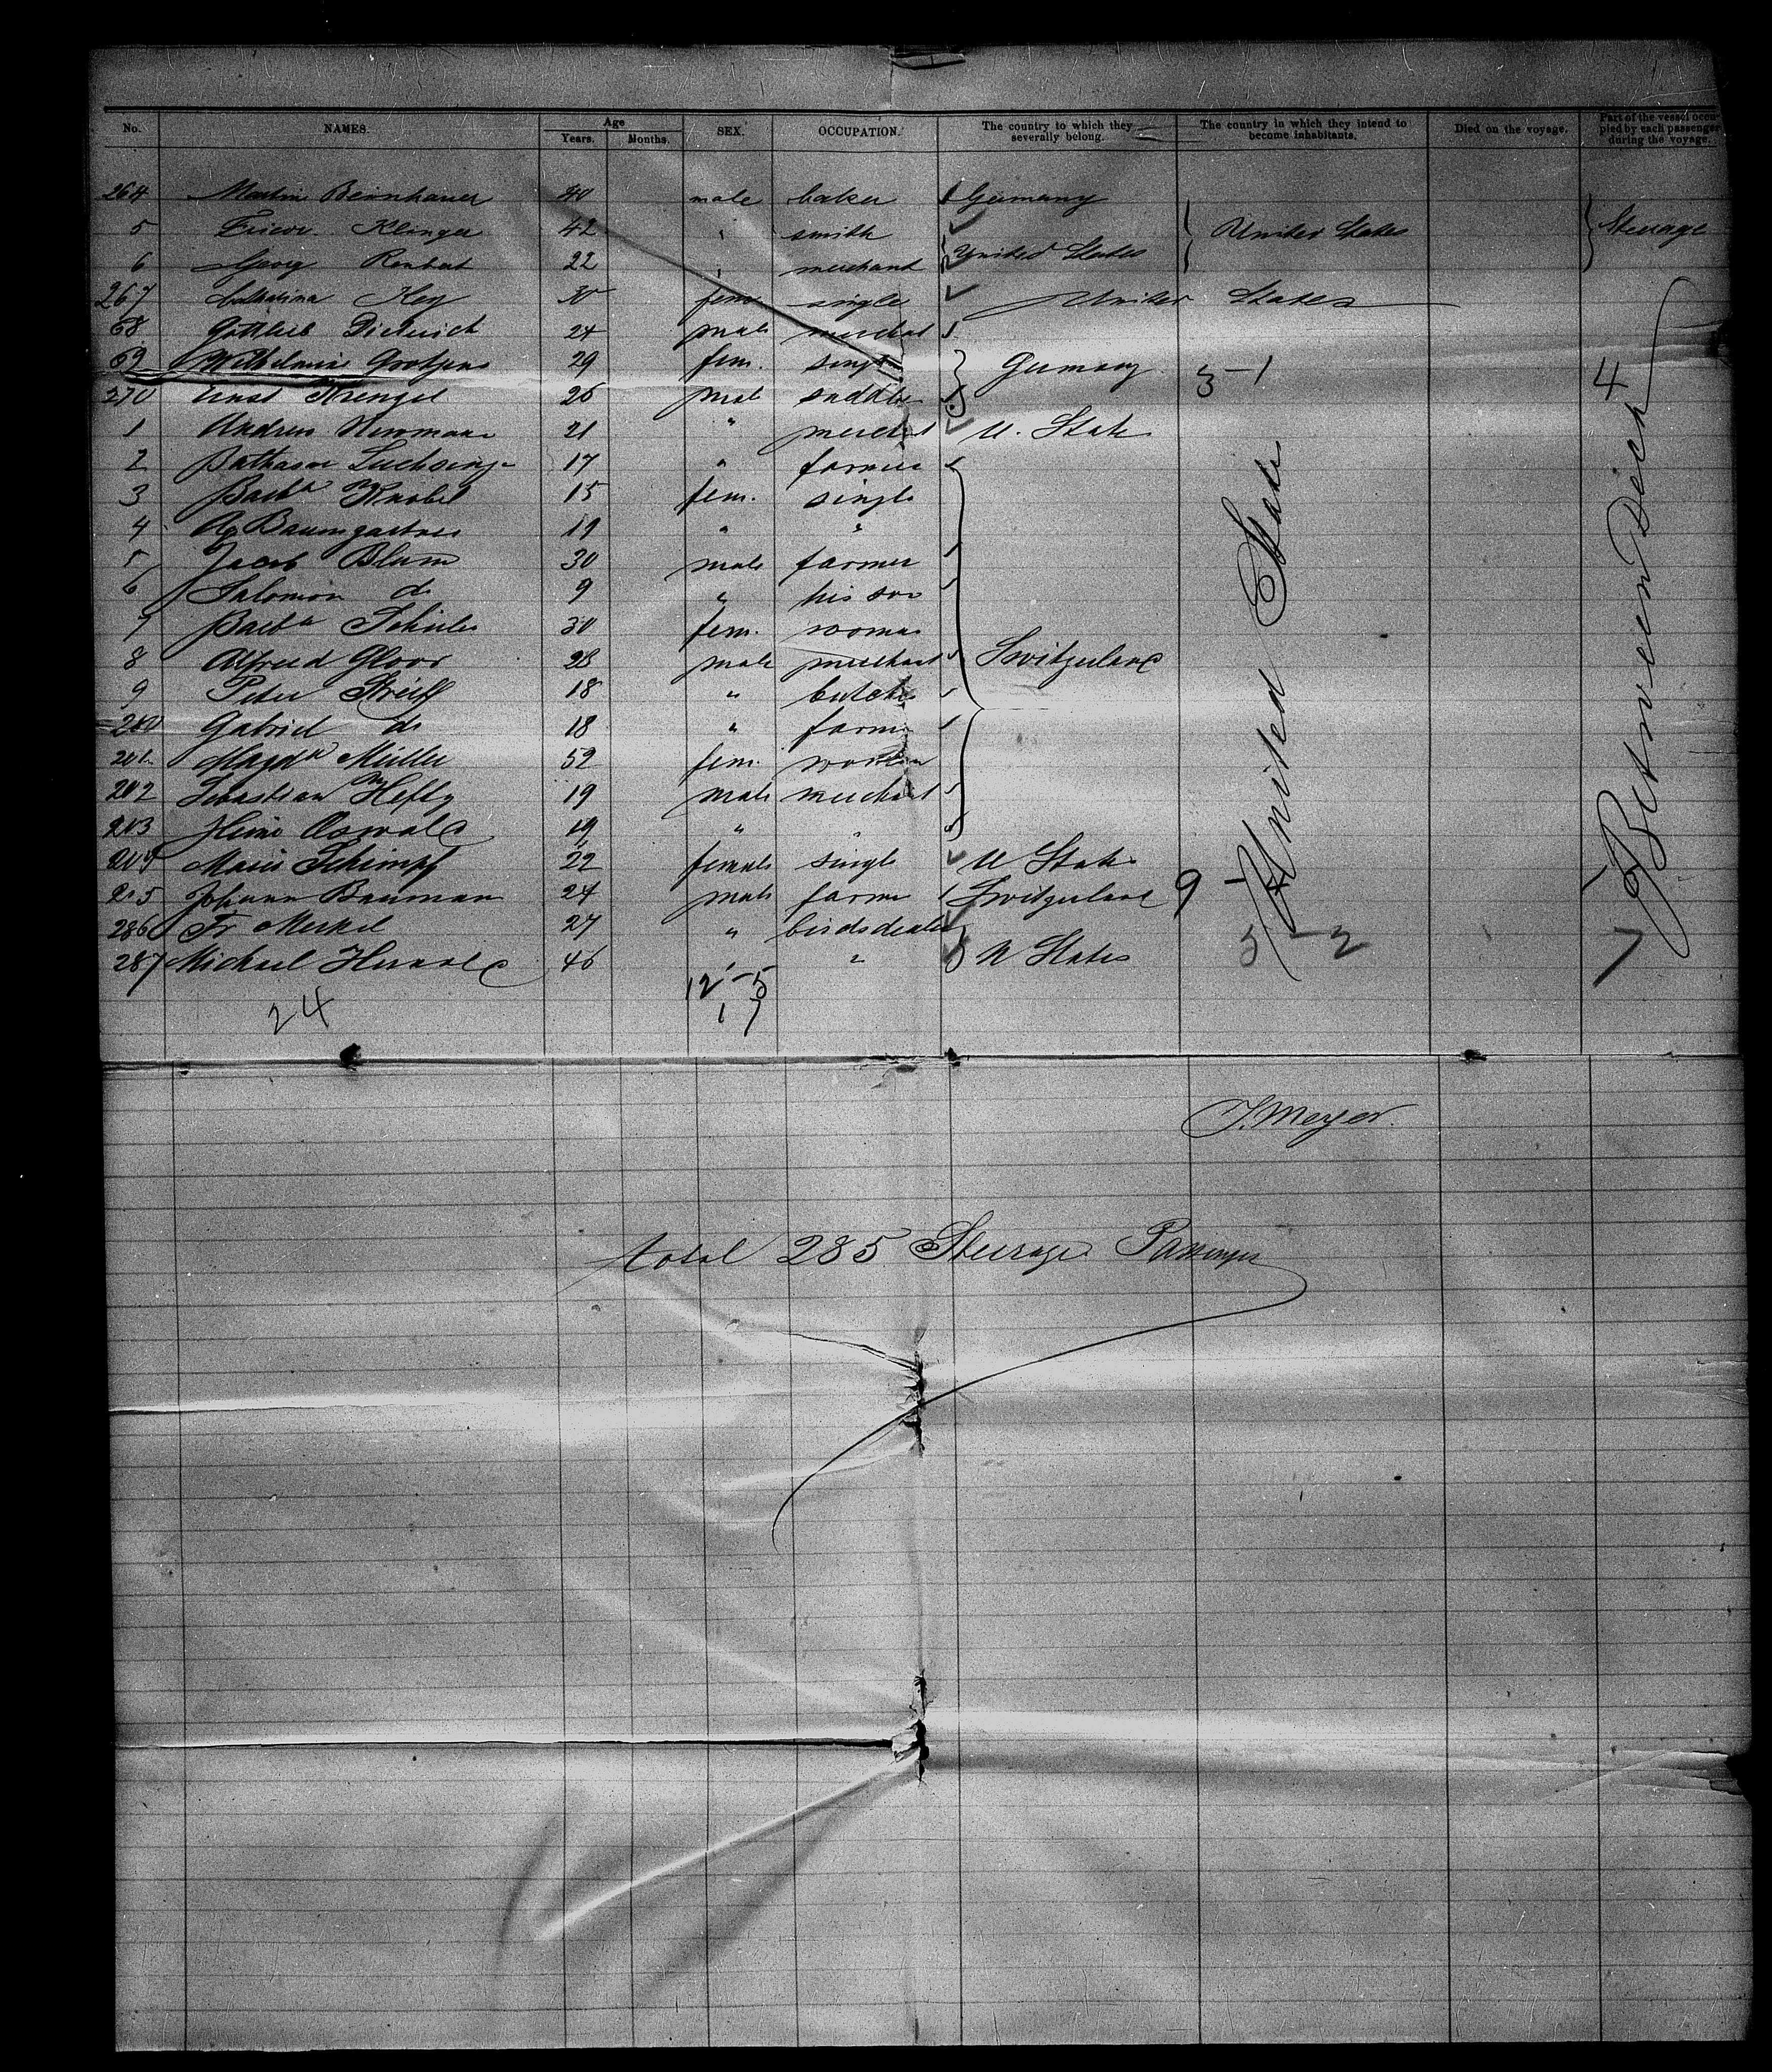 No. NAMES. Age Years. Months. SEX. OCCUPATION. The country to which they severally belong. The country in which they intend to become inhabitants. Died on the voyage. Part of the vessel occupied by each passenger during the voyage.
264 Martin Beinhauer 40 male baker Germany
5 Friedr. Klinger 42 " smith United States Steerage
6 Georg 22 " merchant United States
267 Catharina Key 30 fem single United States
68 Gottlieb Dieterich 24 male merchat
69 Wilhelmine 29 fem. singl Germany 3-1 4
270 Ernst Krengel 26 male saddler
1 Andreas Newmann 21 " merchat U. State
2 Balthasar Luchsinger 17 " farmer
3 Barba Knobel 15 fem. single
4 Ag Baumgartner 19 " "
5 Jacob Blum 30 male farmer
6 Salomon do 9 " his son
7 Barba Schuler 30 fem. woman
8 Alfred Gloor 28 male merchant Switzerland
9 Peter Streiff 18 " butcher
280 Gabriel do 18 " farmer
281 Magda Müller 52 fem. woman
282 Sebastian Hefty 19 male merchant
283 Heinr Oswald 19 " "
284 Marie Schimpf 22 female single U States
285 Johann Bauman 24 male farmer Switzerland 9
286 Fr Merkel 27 " birdsdealer
287 Michael 46 " " U States 5-2 7
United States
Between Deck
12-5
24 17
J. Meyer.
total 285 Steerage Passenger